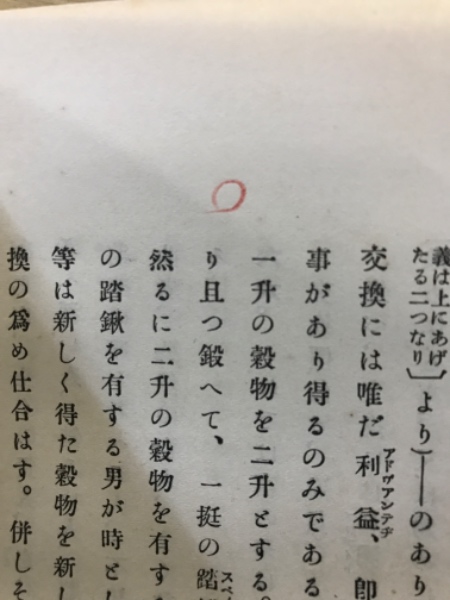 義は上にあげ
たる二つなり〕より)――のあり
アドヴアンテヂ
交換には唯だ利益、卽
事があり得るのみである
一升の穀物を二升とする。
り且つ鍛へて、一挺の踏
スペ
然るに二升の穀物を有す
の踏鍬を有する男が時とし
等は新しく得た穀物を新し
換の爲め仕合はす。併しそ